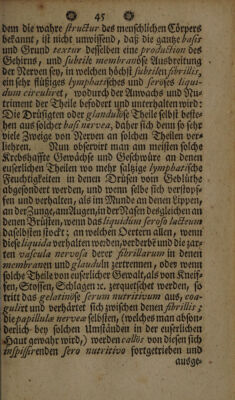 45
dem die wahre structur des menschlichen Cörpers
bekannt, ist nicht unwissend, daß die gantze basis
und Grund textur desselben eine production des
Gehirns, und subtile membranöse Ausbreitung
der Nerven sey, in welchen höchst subtilen fibrillis,
ein sehr flüßiges lymphatisches und seröses liqui-
dum circuliret, wodurch der Anwachs und Nu-
triment der Theile befodert und unterhalten wird:
Die Drüsigten oder glandulöse Theile selbst beste-
hen aus solcher basi nervea, daher denn so sehr
viele Zweige von Nerven an solchen Theilen ver-
liehren. Nun observirt man am meisten solche
Krebshaffte Gewächse und Geschwüre an denen
euserlichen Theilen wo mehr saltzige lymphatische
Feuchtigkeiten in denen Drüsen von Geblüthe
abgesondert werden, und wenn selbe sich verstopf-
fen und verhalten, als im Munde an denen Lippen,
an der Zunge, am Augen, in der Nasen desgleichen an
denen Brüsten, wenn das liquidum seroso lacteum
daselbsten stockt; an welchen Oertern allen, wenn
diese liquida verhalten werden, verderbt und die zar-
ten vascula nervosa derer fibrillarum in denen
membranen und glanduln zertrennen, oder wenn
solche Theile von euserlicher Gewalt, als von Kneif-
fen, Stossen, Schlagen ꝛc. zerquetschet werden, so
tritt das gelatinöse serum nutritivum aus, coa-
gulirt und verhärtet sich zwischen denen fibrillis;
die papillulæ nerveæ selbsten, (welches man abson-
derlich bey solchen Umständen in der euserlichen
Haut gewahr wird,) werden callös von diesen sich
inspisirenden sero nutritivo fortgetrieben und
ausge-